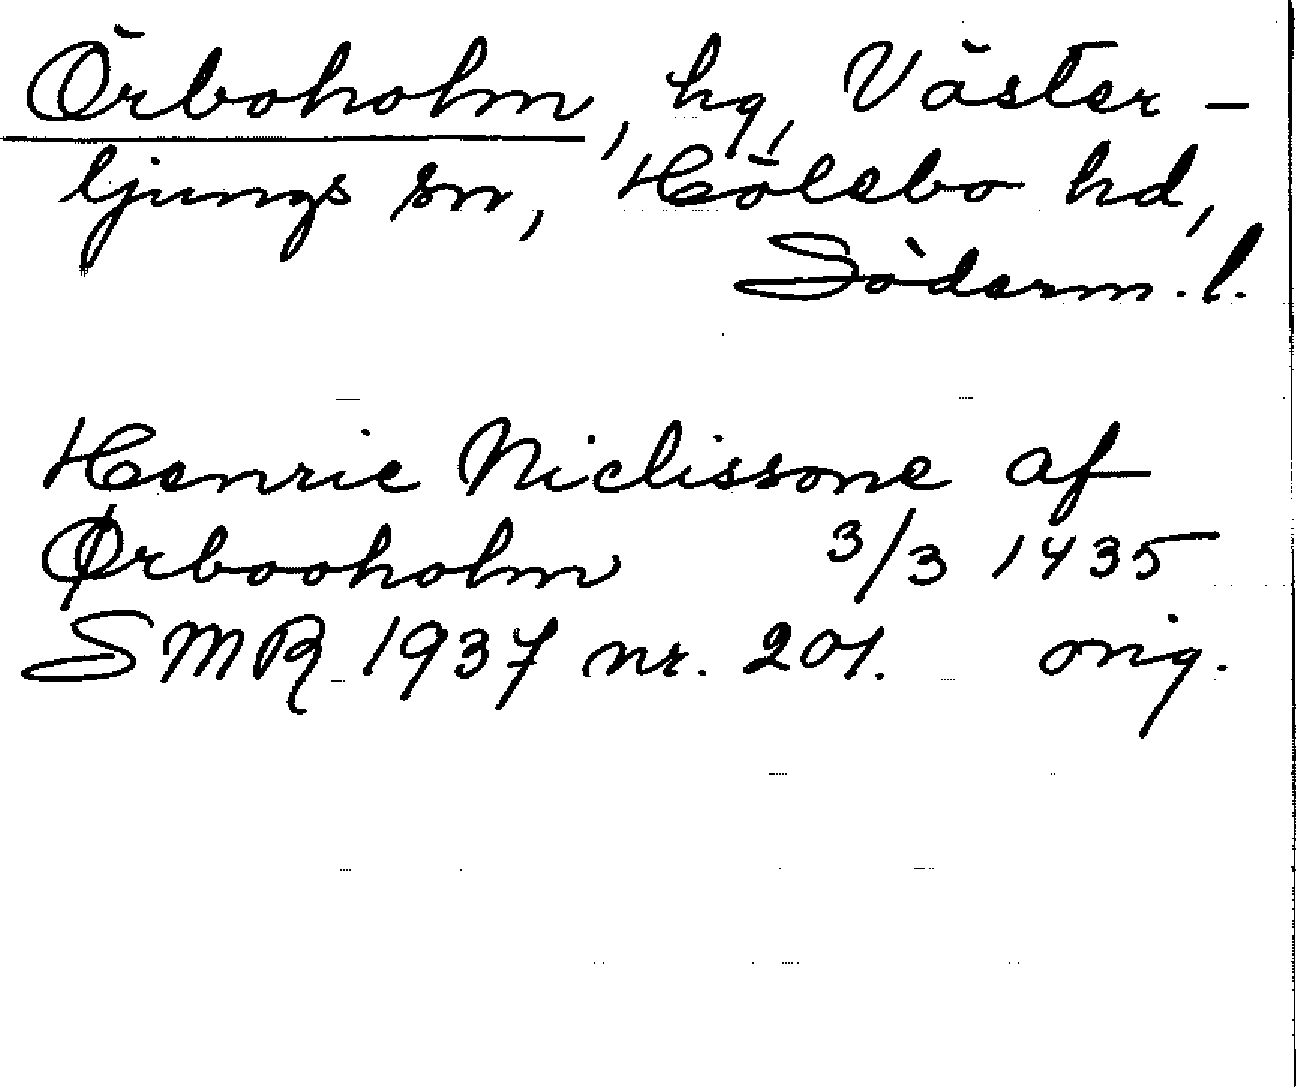 Örboholm, hg, Väster-
ljungs sn, Hölebo hd,
Söderm. l.
Henric Niclissone af
Ørbooholm 3/3 1435
SMR 1937 nr. 201. orig.